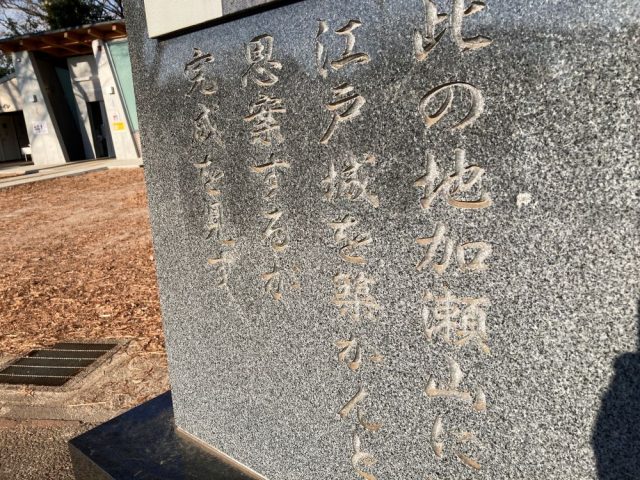 此の地加瀬山に
江戸城を築かんと
思案するが
完成を見ず